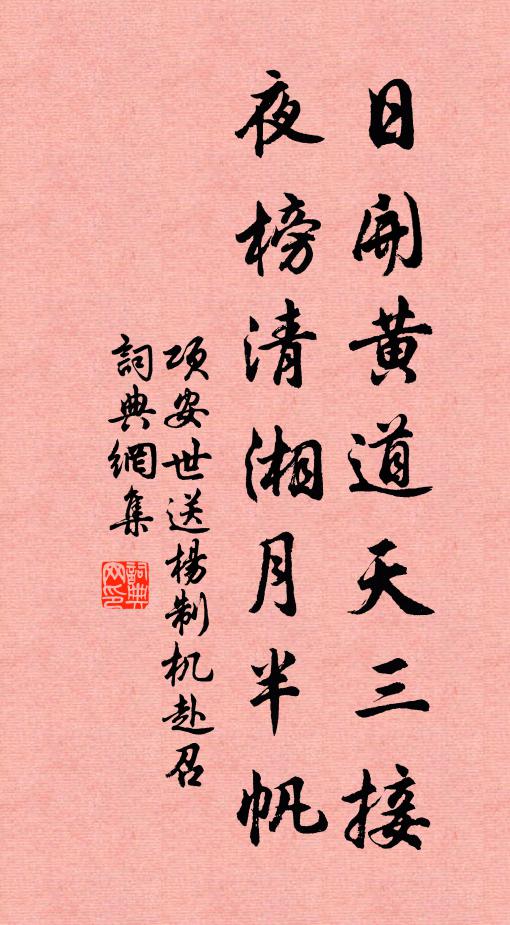 日開黄道天三接
夜榜清湘月半帆
項安世送楊制机赴召
詞典網集
詞典网印